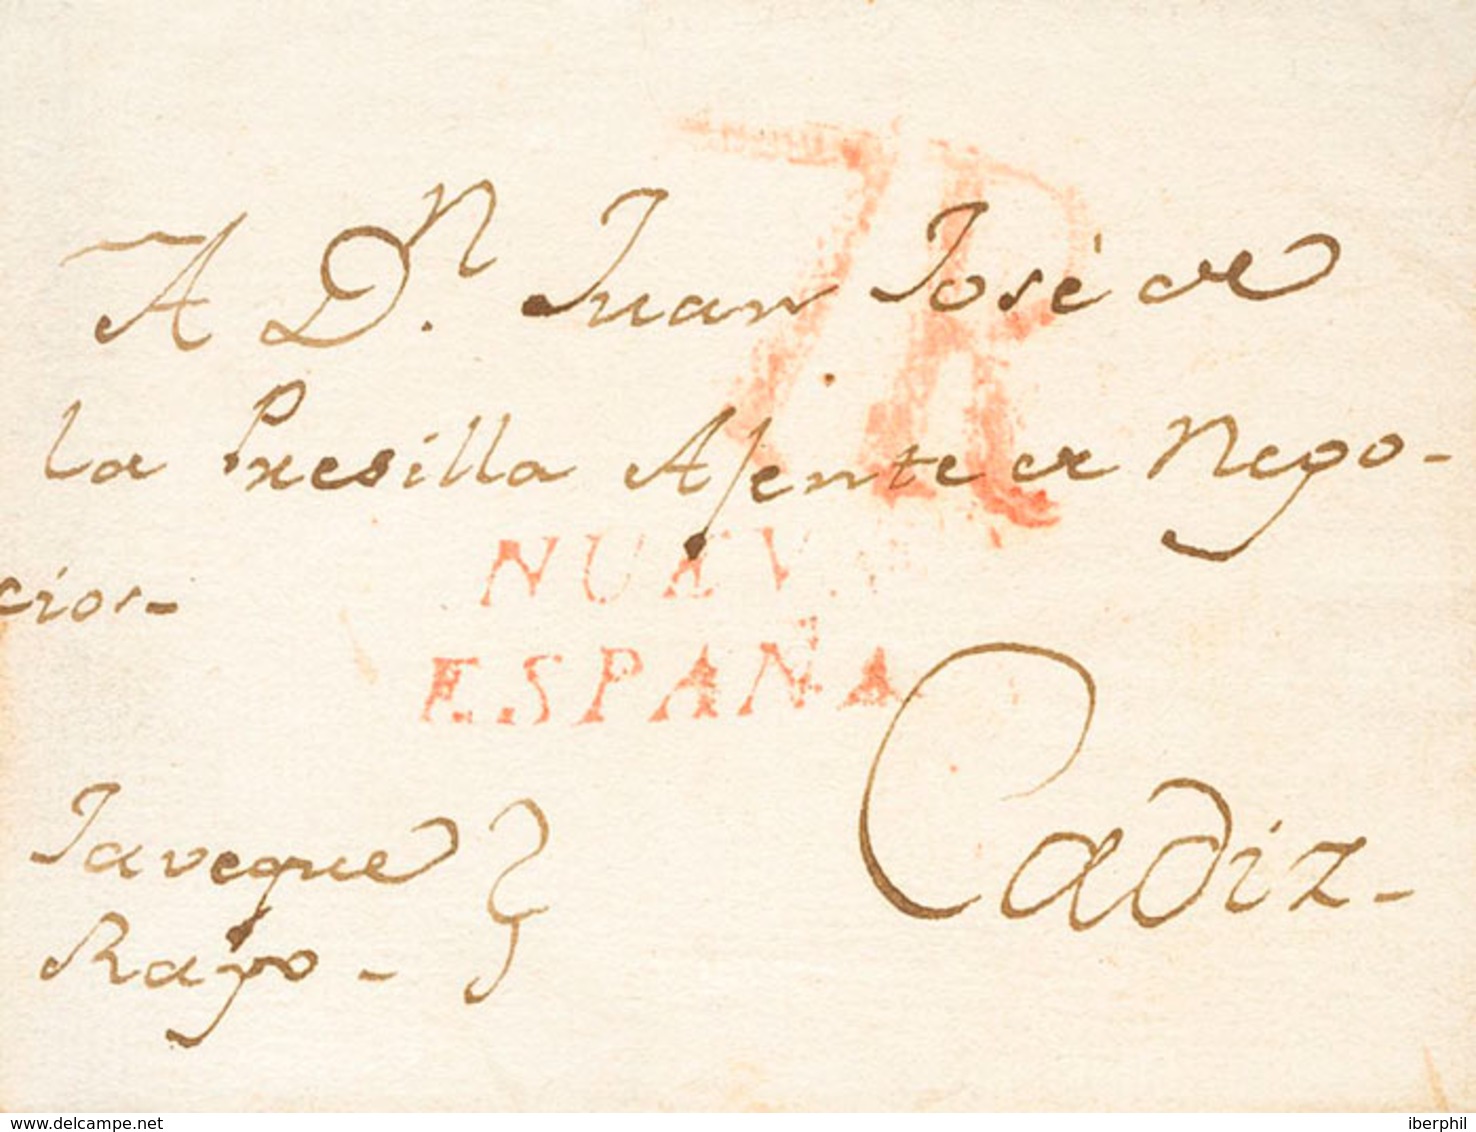 7R
A D.n Juan José de
la Presilla Ajente de Nego-
cios-
NUEVA
ESPAÑA
Cadiz-
Javeque
Rayo-
www.delcampe.net
iberphil